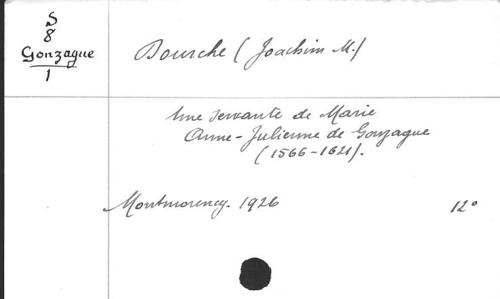 S
8
Gonzague
1
Bourche (Joachim M.)
Une servante de Marie
Anne-Julienne de Gonzague
(1566-1621).
Montmorency. 1926
12°